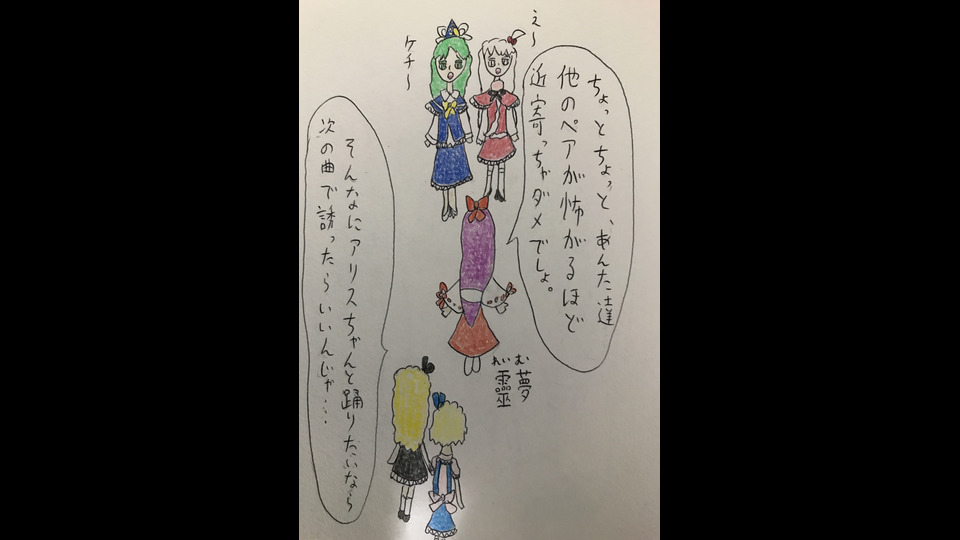 え～
ケチ～
ちょっとちょっと、あんた達
他のペアが怖がるほど
近寄っちゃダメでしょ。
れいむ
靈夢
そんなにアリスちゃんと踊りたいなら
次の曲で誘ったらいいんじゃ…